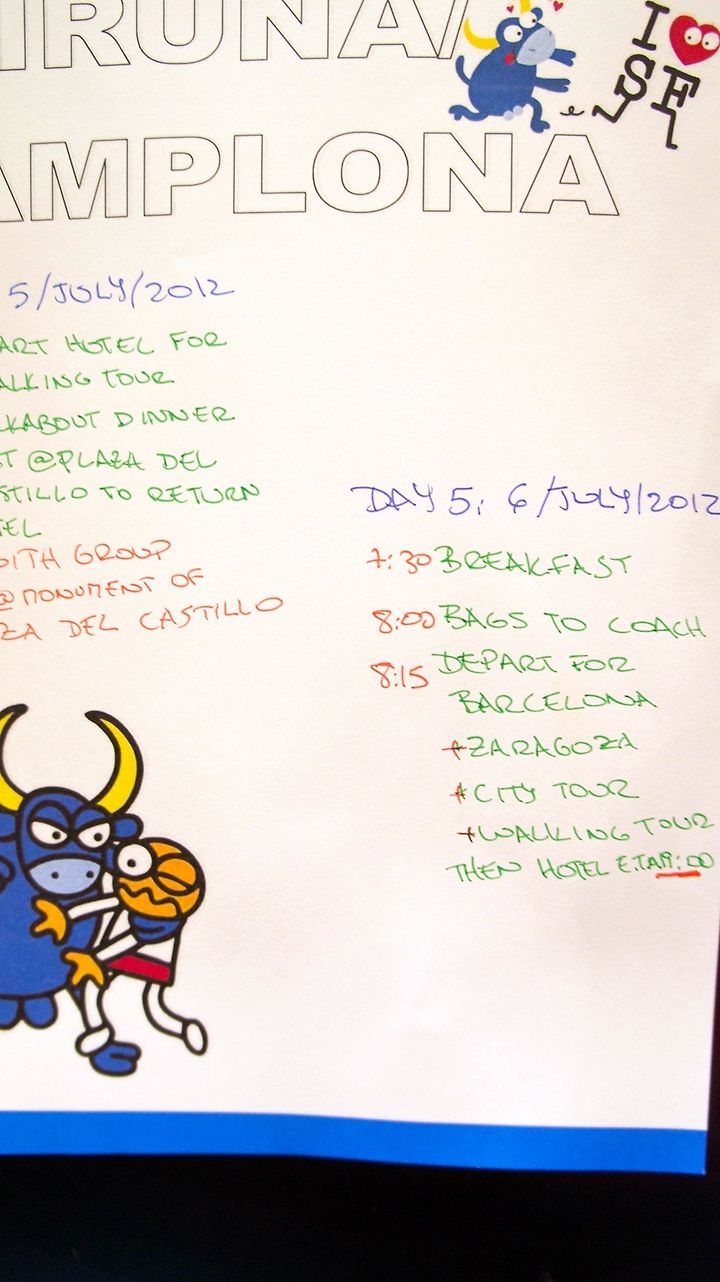 IRUÑA/
I
SF
AMPLONA
5/JULY/2012
ART HOTEL FOR
ALKING TOUR
LKABOUT DINNER
ST @PLAZA DEL
STILLO TO RETURN
TEL
DITH GROUP
@MONUMENT OF
ZA DEL CASTILLO
DAY 5: 6/JULY/2012
7:30 BREAKFAST
8:00 BAGS TO COACH
8:15 DEPART FOR
BARCELONA
+ZARAGOZA
+CITY TOUR
+WALKING TOUR
THEN HOTEL E.TA